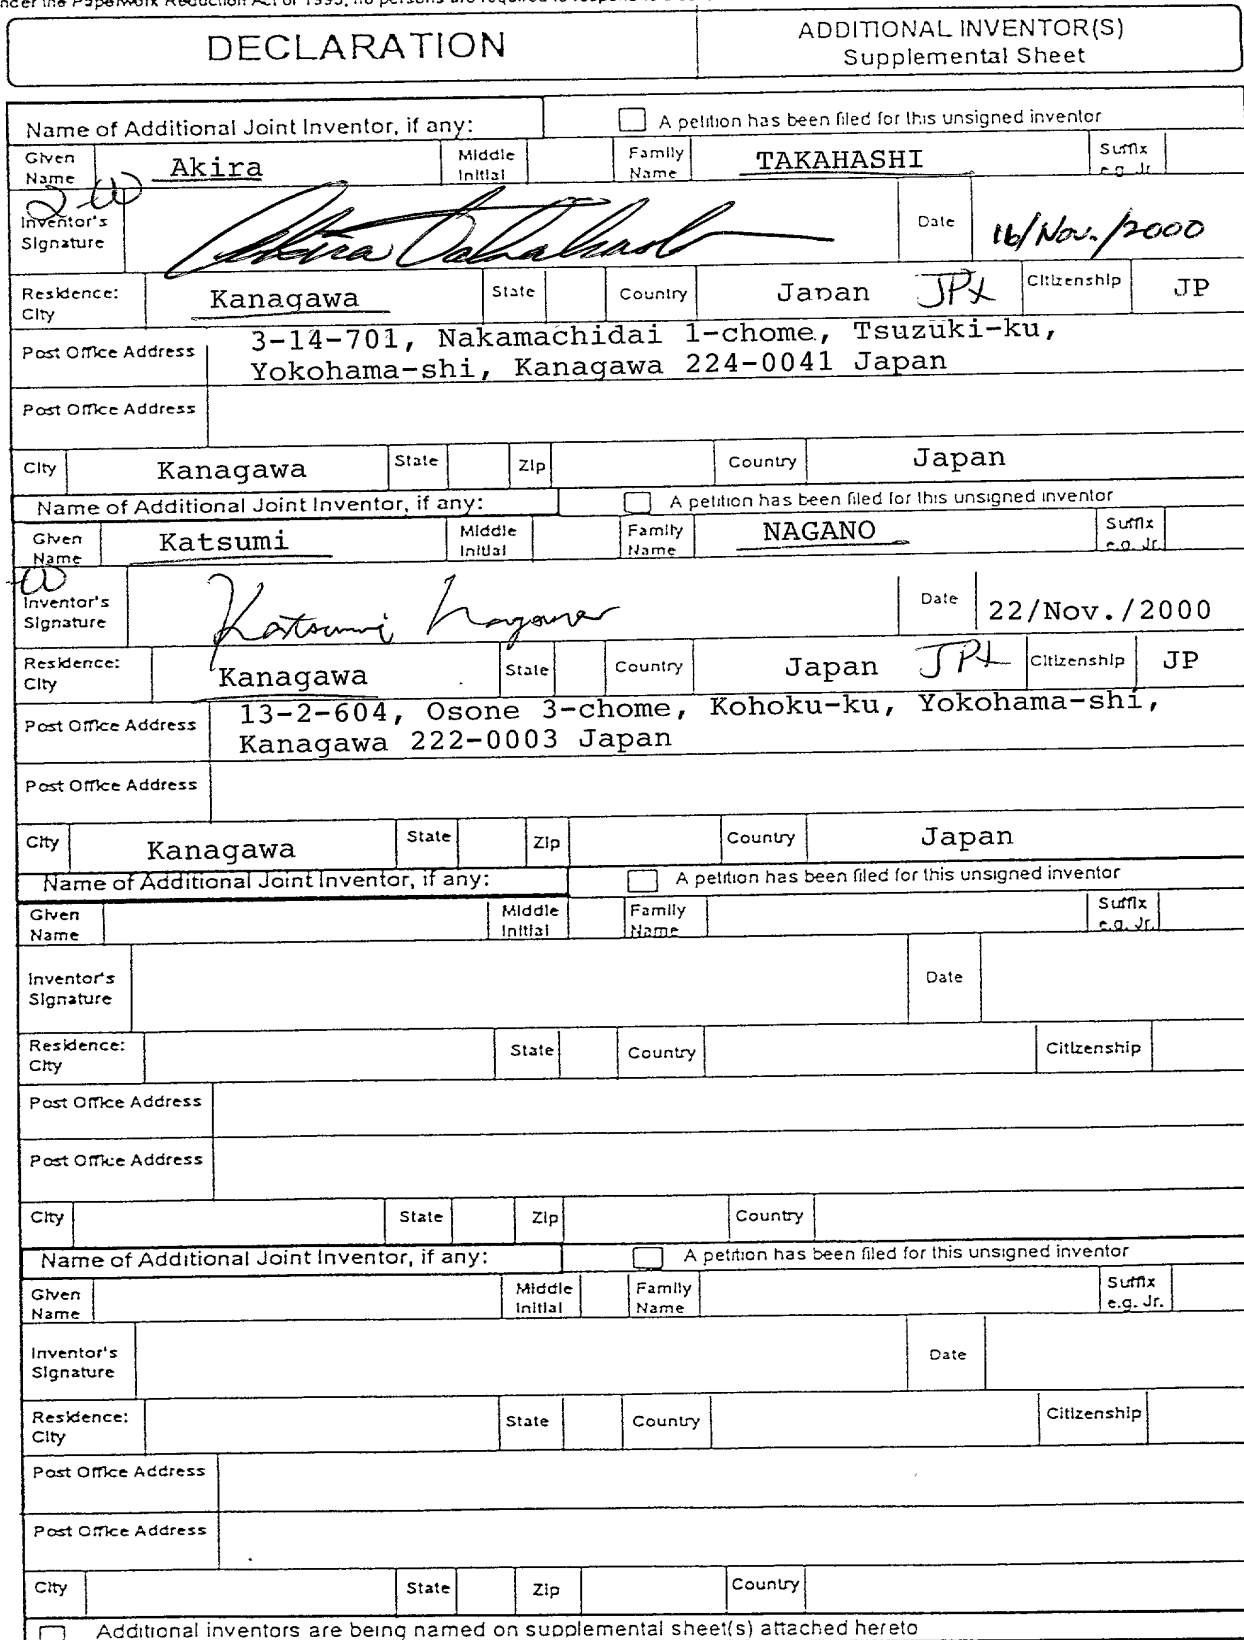 nder the Paperwork Reduction Act of 1995, no persons are required to respond to a
DECLARATION
ADDITIONAL INVENTOR(S)
Supplemental Sheet
Name of Additional Joint Inventor, if any:
A petition has been filed for this unsigned inventor
Given Name Akira Middle Initial Family Name TAKAHASHI Suffix e.g. Jr.
Inventor's Signature Akira Takahashi Date 16/Nov./2000
Residence: City Kanagawa State Country Japan JPX Citizenship JP
Post Office Address 3-14-701, Nakamachidai 1-chome, Tsuzuki-ku,
Yokohama-shi, Kanagawa 224-0041 Japan
Post Office Address
City Kanagawa State Zip Country Japan
Name of Additional Joint Inventor, if any:
A petition has been filed for this unsigned inventor
Given Name Katsumi Middle Initial Family Name NAGANO Suffix e.g. Jr.
Inventor's Signature Katsumi Nagano Date 22/Nov./2000
Residence: City Kanagawa State Country Japan JPX Citizenship JP
Post Office Address 13-2-604, Osone 3-chome, Kohoku-ku, Yokohama-shi,
Kanagawa 222-0003 Japan
Post Office Address
City Kanagawa State Zip Country Japan
Name of Additional Joint Inventor, if any:
A petition has been filed for this unsigned inventor
Given Name Middle Initial Family Name Suffix e.g. Jr.
Inventor's Signature Date
Residence: City State Country Citizenship
Post Office Address
Post Office Address
City State Zip Country
Name of Additional Joint Inventor, if any:
A petition has been filed for this unsigned inventor
Given Name Middle Initial Family Name Suffix e.g. Jr.
Inventor's Signature Date
Residence: City State Country Citizenship
Post Office Address
Post Office Address
City State Zip Country
Additional inventors are being named on supplemental sheet(s) attached hereto